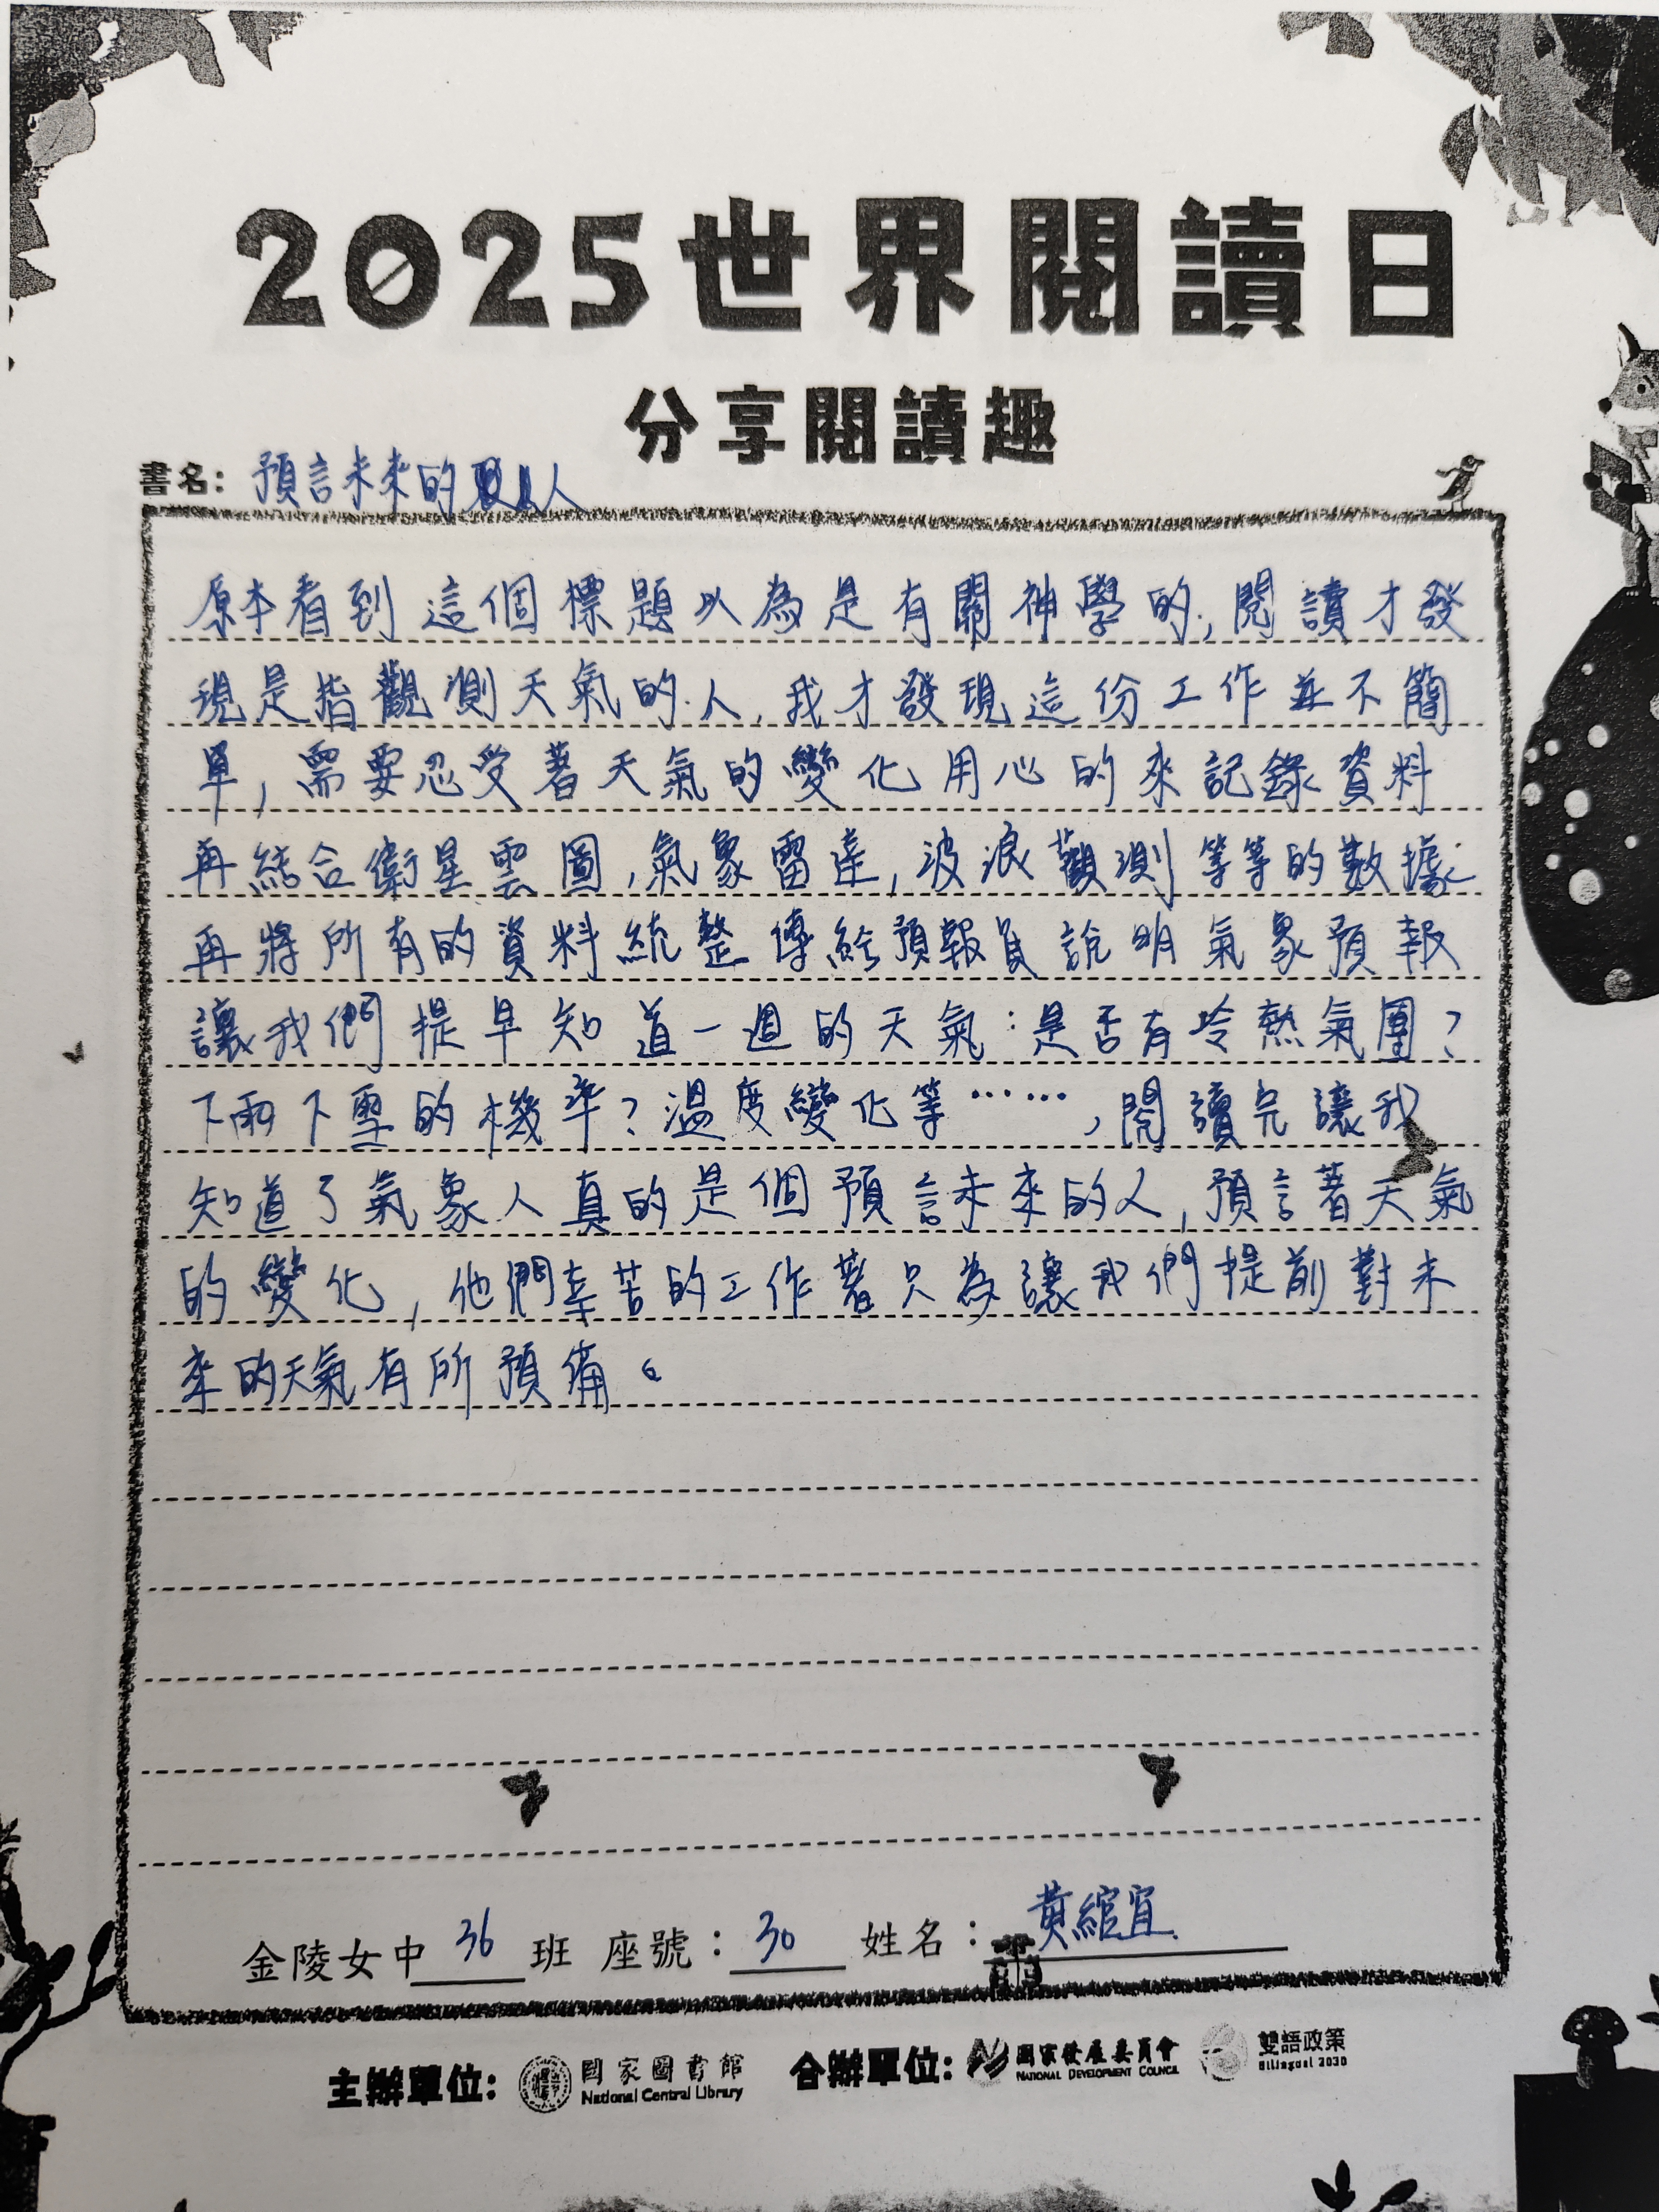 2025世界閱讀日
分享閱讀趣
書名：預言未來的人
原本看到這個標題以為是有關神學的,閱讀才發
現是指觀測天氣的人,我才發現這份工作並不簡
單,需要忍受著天氣的變化用心的來記錄資料
再結合衛星雲圖,氣象雷達,波浪觀測等等的數據
再將所有的資料統整傳給預報員說明氣象預報
讓我們提早知道一週的天氣:是否有冷熱氣團?
下雨下雪的機率?溫度變化等……,閱讀完讓我
知道了氣象人真的是個預言未來的人,預言著天氣
的變化,他們辛苦的工作著只為讓我們提前對未
來的天氣有所預備。
金陵女中 36 班 座號：30 姓名：黃綰宜
主辦單位: 國家圖書館 National Central Library 合辦單位: 國家發展委員會 NATIONAL DEVELOPMENT COUNCIL 雙語政策 Bilingual 2030